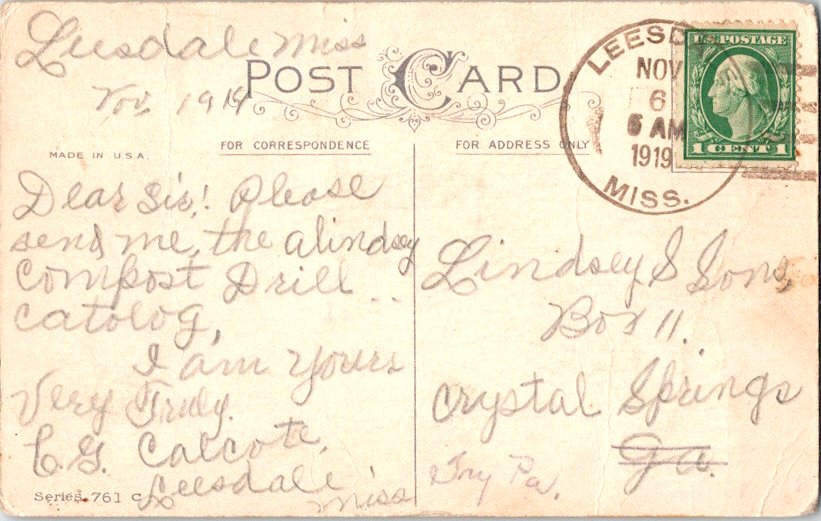 Leesdale Miss
Nov, 1919
POST CARD
LEESD
NOV
6
6 AM
1919
MISS.
U.S. POSTAGE
1 CENT 1
MADE IN U.S.A.
FOR CORRESPONDENCE
FOR ADDRESS ONLY
Dear Sir! Please
send me, the a lindsey
compost Drill
catolog,
I am yours
Very Truly.
C.G. Calcote,
Leesdale
Miss
Series 761 C
Lindsey & Sons,
Box 11.
Crystal Springs
Ga.
Try Pa.